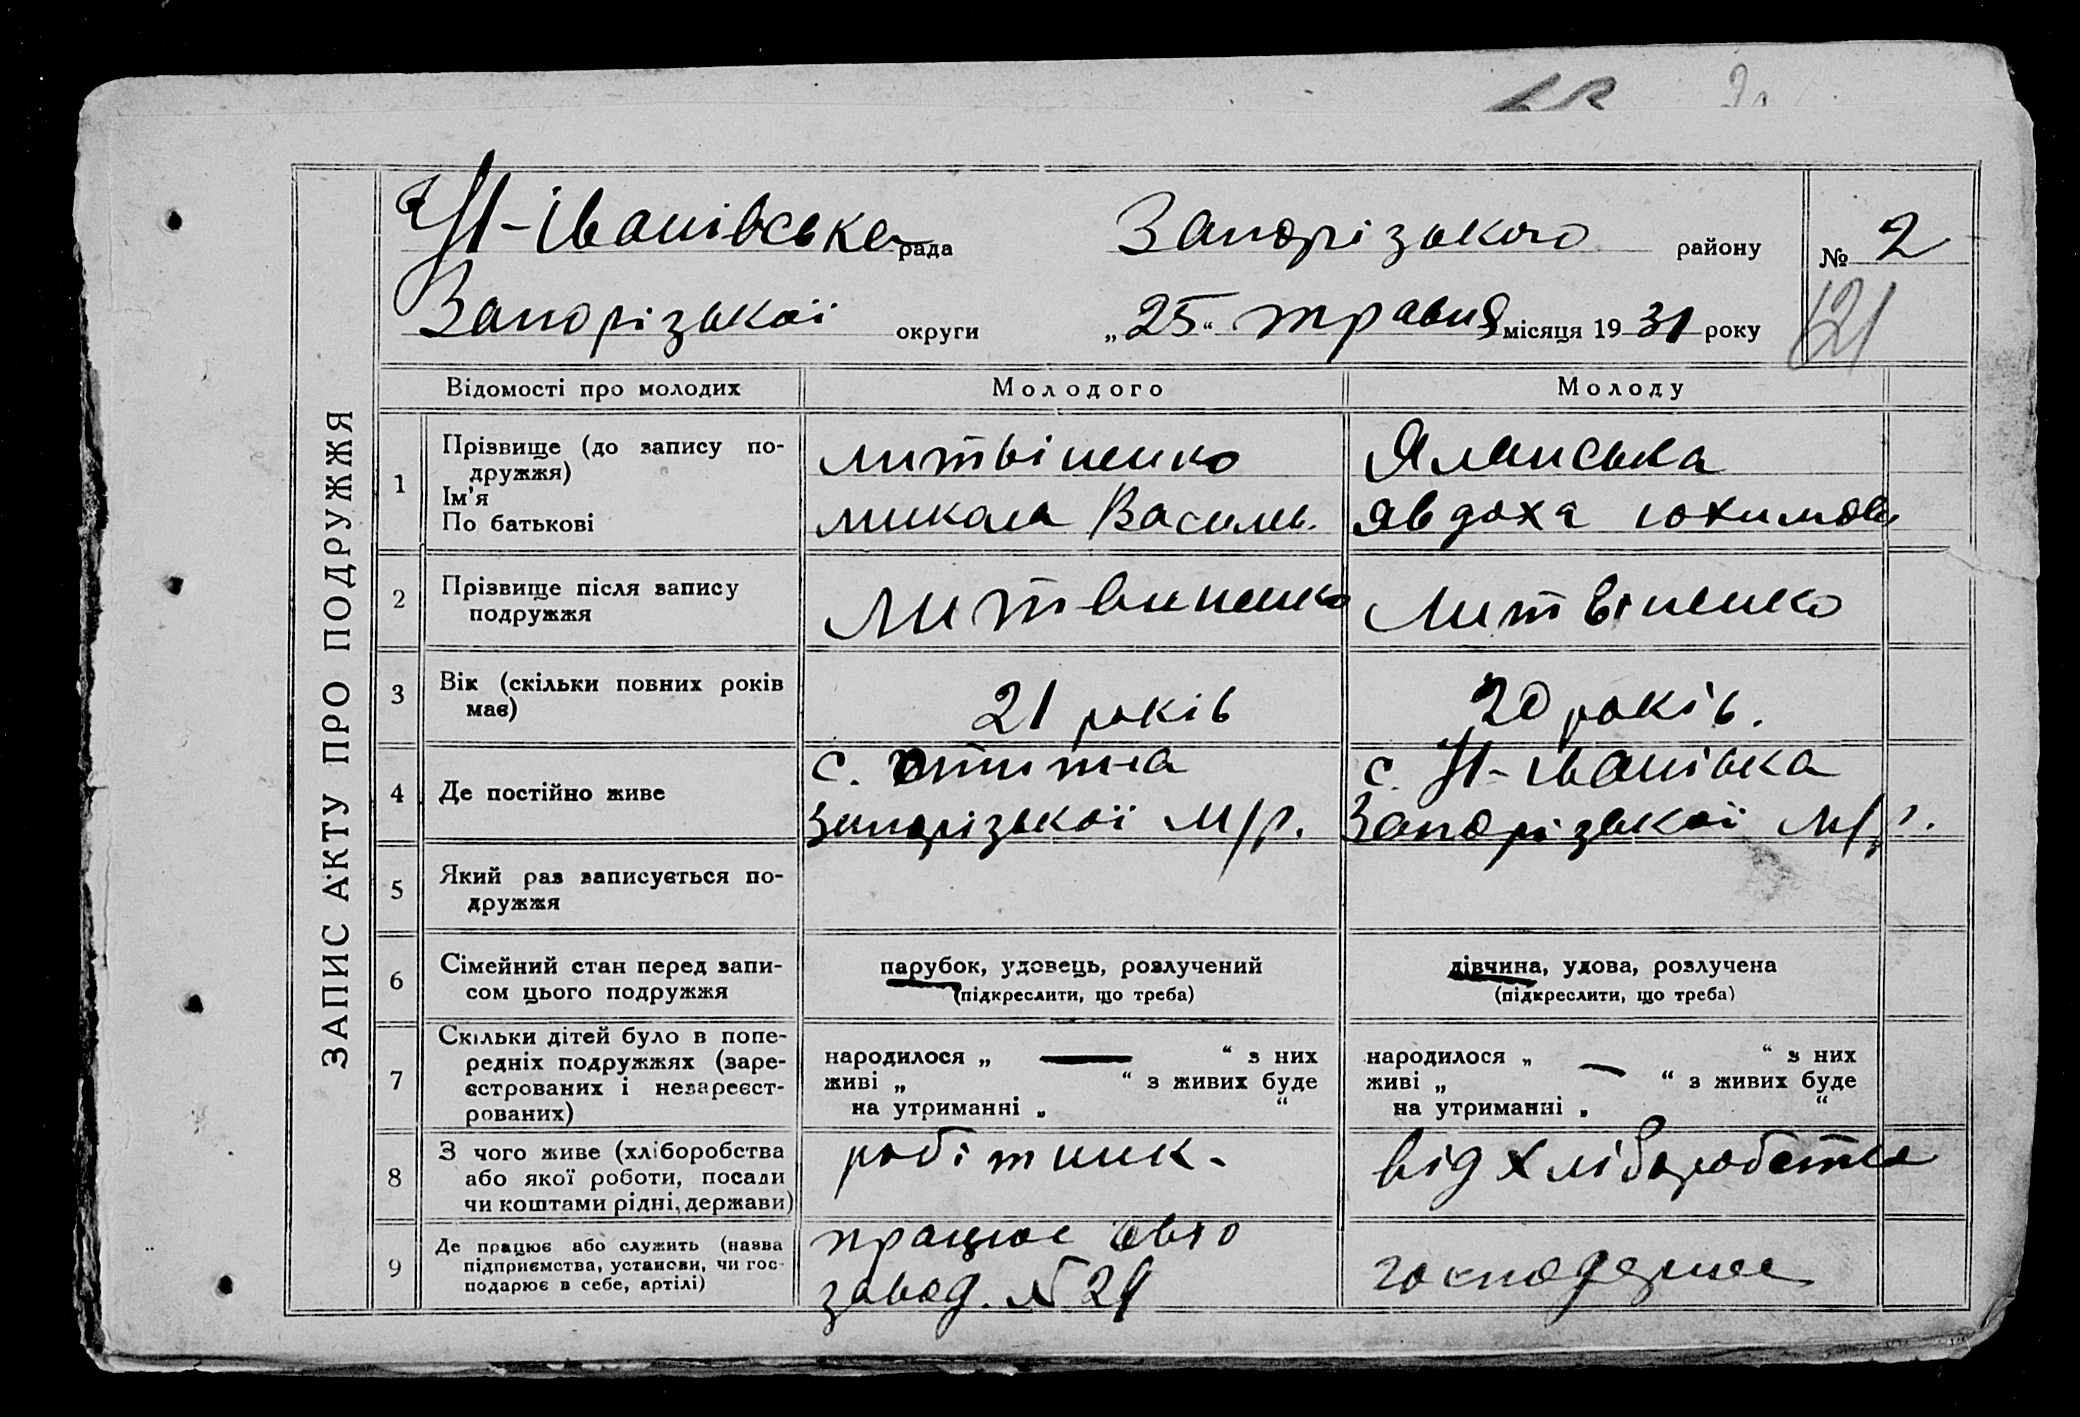 ЗАПИС АКТУ ПРО ПОДРУЖЖЯ
Н-Іванівська рада Запорізького району № 2
Запорізької округи „25“ травня місяця 1931 року 121
Відомості про молодих Молодого Молоду
1 Прізвище (до запису по-
дружжя)
Ім'я
По батькові
Литвіненко
Микола Василь.
Яланська
Явдоха Юхимов
2 Прізвище після запису
подружжя
Литвиненко Литвіненко
3 Вік (скільки повних років
має)
21 років 20 років.
4 Де постійно живе
с.
Запорізької м/р.
с. Н-Іванівка
Запорізької м/р.
5 Який раз записується по-
дружжя
6 Сімейний стан перед запи-
сом цього подружжя
парубок, удовець, розлучений
(підкреслити, що треба)
дівчина, удова, розлучена
(підкреслити, що треба)
7 Скільки дітей було в попе-
редніх подружжях (заре-
єстрованих і незареєст-
рованих)
народилося „ — “ з них
живі „ “ з живих буде
на утриманні „ “
народилося „ — “ з них
живі „ “ з живих буде
на утриманні „ “
8 З чого живе (хліборобства
або якої роботи, посади
чи коштами рідні, держави)
робітник.
від хліборобства
9 Де працює або служить (назва
підприємства, установи, чи гос-
подарює в себе, артілі)
працює
завод. № 29
господарює